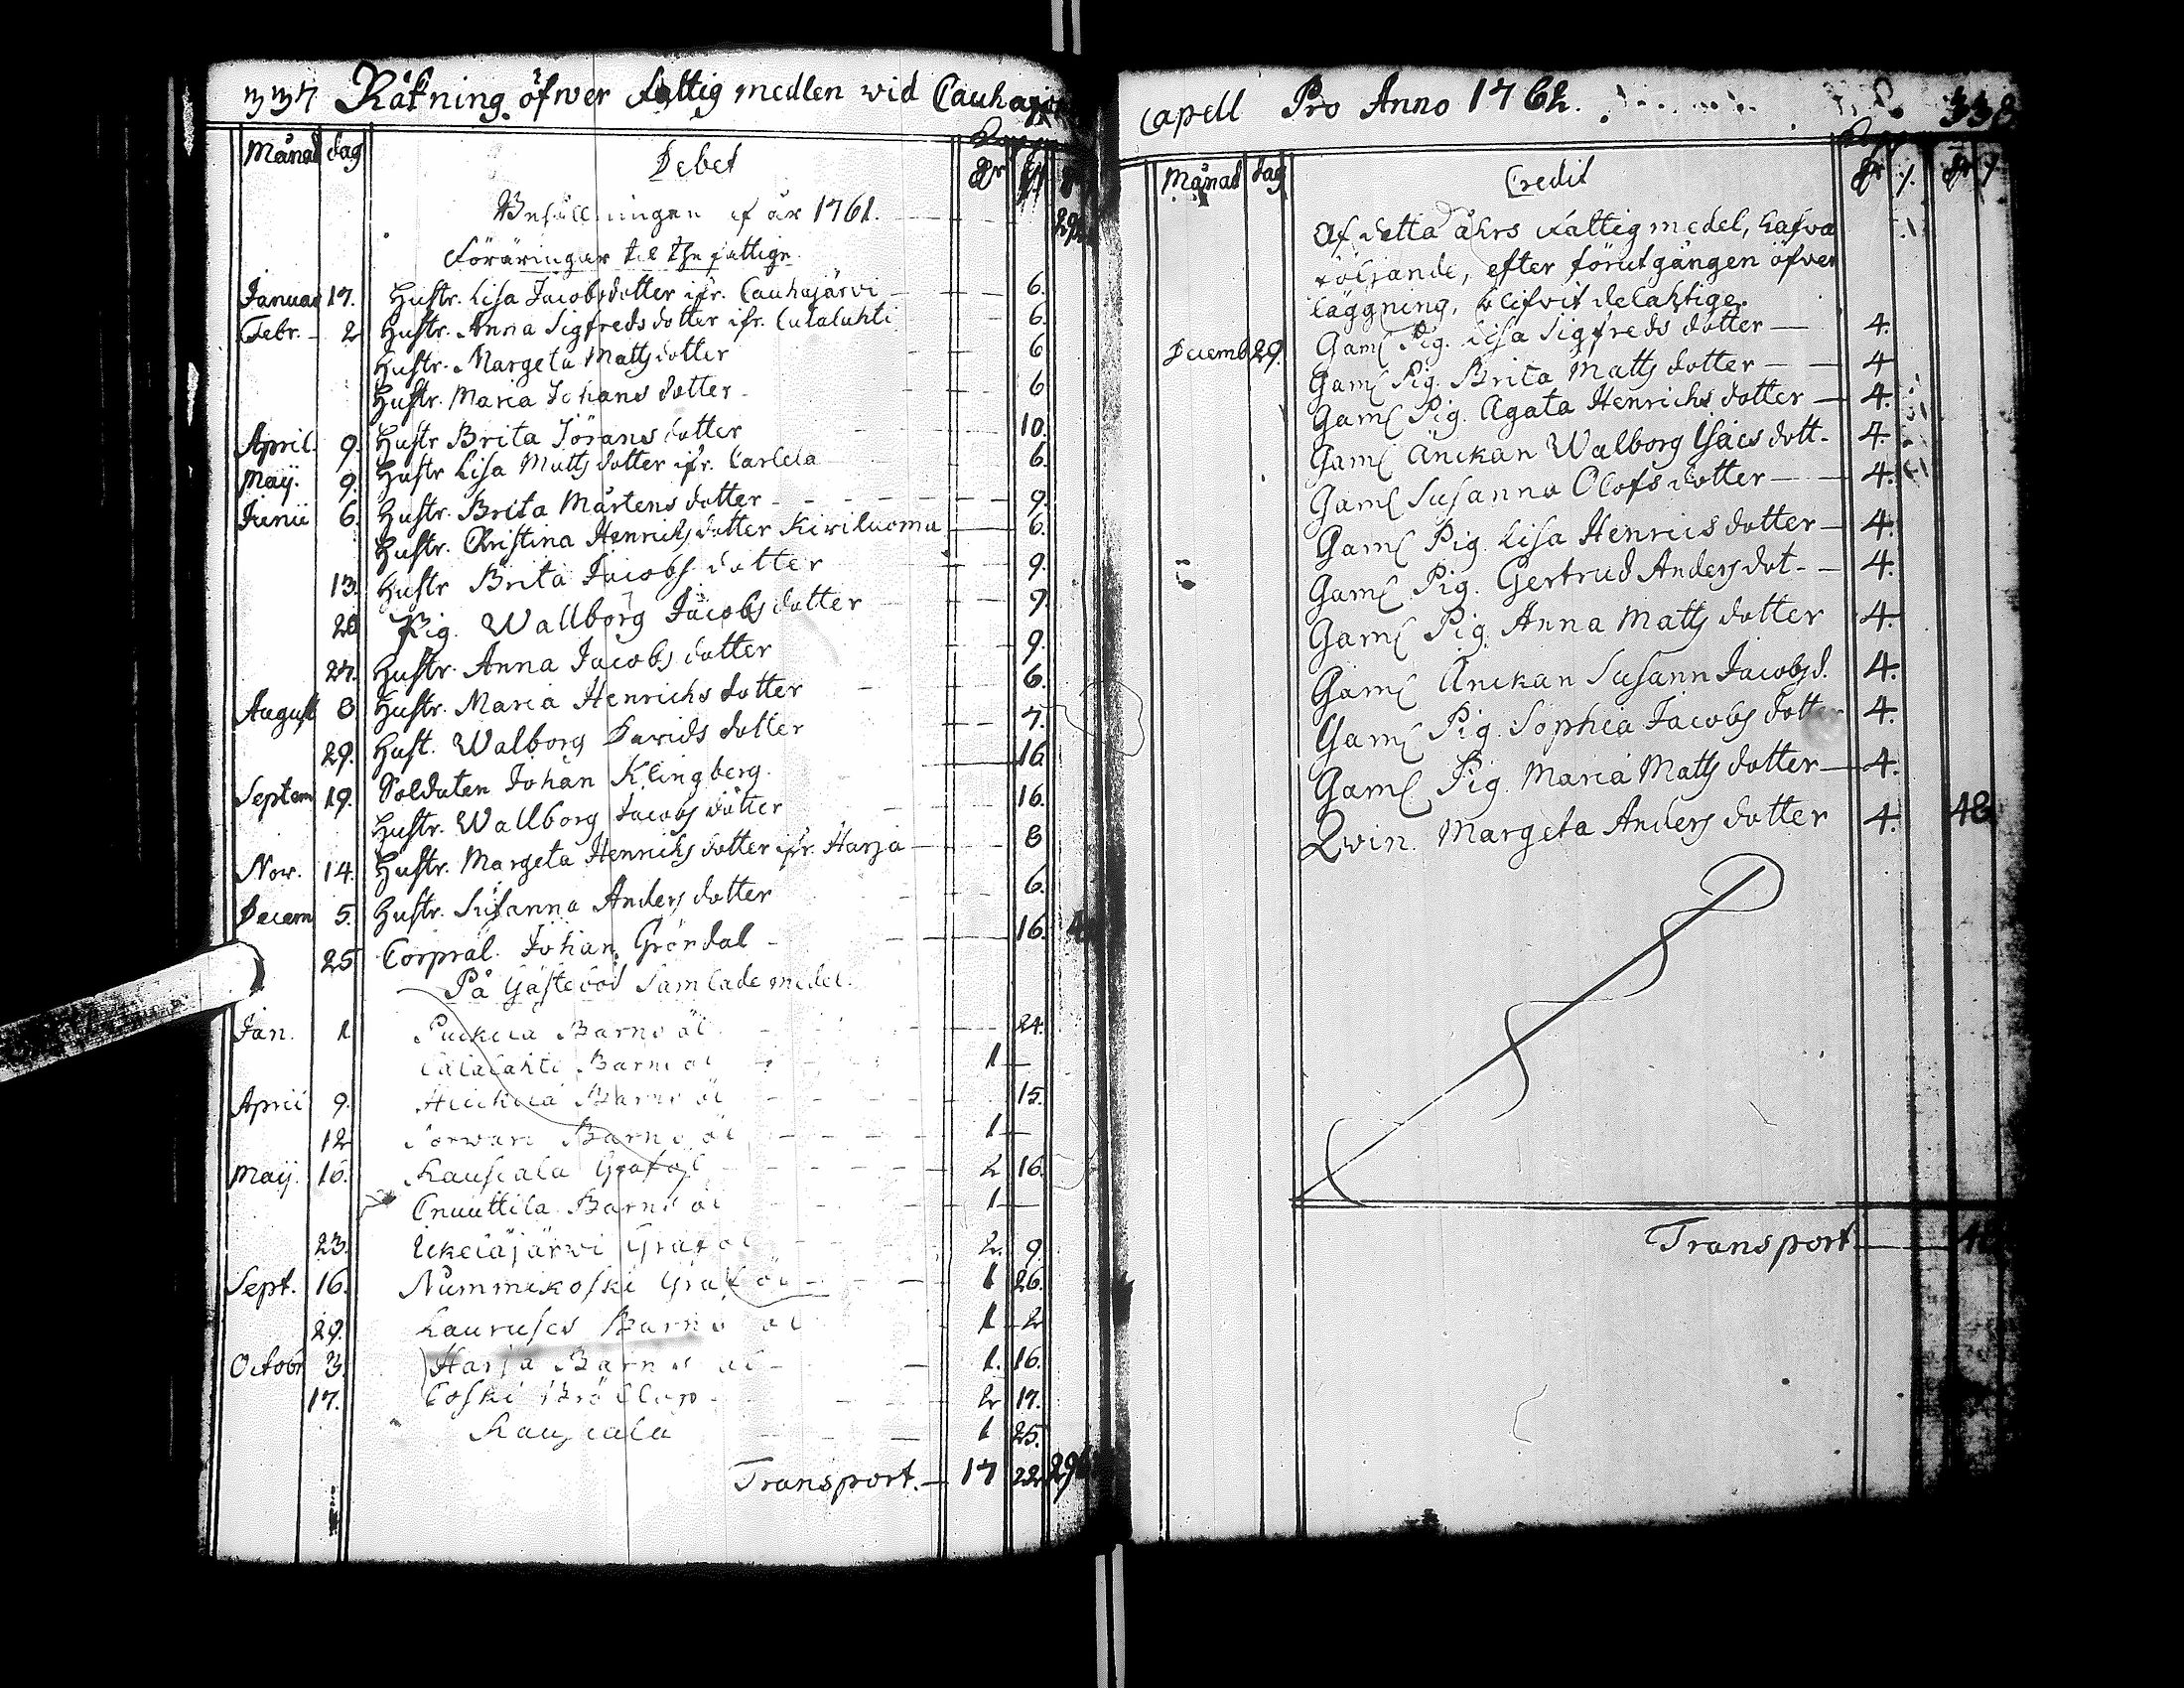 337 Räkning öfwer fattig medlen wid Cauhajoki
Månad dag Debet
Behållningen af år 1761.
Föräringar til the fattige.
Januar 17. Hustr. Lisa Jacobsdotter ifr. Cauhajärvi 6.
Febr. 2 Hustr. Anna Sigfredsdotter ifr. 6.
Hustr. Margeta Mattsdotter 6
Hustr. Maria Johansdotter 6
April. 9. Hustr Brita Jöransdotter 10.
Maij. 9. Hustr Lisa Mattsdotter ifr. Carlela 6.
Junii 6. Hustr. Brita Mårtensdotter 9.
Hustr. Christina Henrichsdotter Kiviluoma 6.
13. Hustr Brita Jacobsdotter 9.
20 Pig. Wallborg Jacobsdotter 9.
27. Hustr. Anna Jacobsdotter 9.
August 8. Hustr. Maria Henrichsdotter 6.
29. Hust. Walborg Davidsdotter 7.
Septem 19. Soldaten Johan Klingberg 16.
Hustr. Wallborg Jacobsdotter 16.
Nov. 14. Hustr. Margeta Henrichsdotter ifr. Harja 8
Decem 5. Hustr. Susanna Andersdotter 6.
25 Corpral. Johan Gröndal 16.
På Gästebod Samlade medel.
Jan. 1 Barns öl 24.
Barns öl 1
April 9. Barns öl 15.
12 Barns öl 1
Maij. 16. Graföl 2 16.
Cnuuttila Barns öl 1
23. Ikeläjärvi Graföl 2. 9.
Sept. 16. Nummikoski Graföl 1 26.
29. Barns öl 1 2
Octobr 3. Harja Barns öl 1. 16.
17. Coski Bröllop 2 17.
1 25.
Transport. 17 22
Capell Pro Anno 1762. 338
Månad dag Credit
Af detta åhrs fattig medel, hafva
följande, efter förutgången öfver
läggning, blifvit delaktige.
Decemb 29. Gaml Pig. Lisa Sigfredsdotter 4.
Gaml Pig. Brita Mattsdotter 4
Gaml Pig. Agata Henrichsdotter 4.
Gaml Änckan Walborg Isacsdott. 4.
Gaml Susanna Olofsdotter 4.
Gaml Pig. Lisa Henricsdotter 4.
Gaml Pig. Gertrud Andersdot. 4.
Gaml Pig. Anna Mattsdotter 4.
Gaml Änckan Susann Jacobsd. 4.
Gaml Pig. Sophia Jacobsdotter 4.
Gaml Pig. Maria Mattsdotter 4.
Qvin. Margeta Andersdotter 4. 48
Transport 48